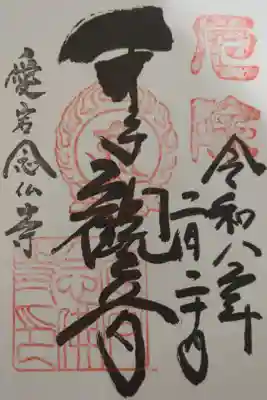 厄除
令和八年
二月二十日
千手觀音
愛宕念仏寺